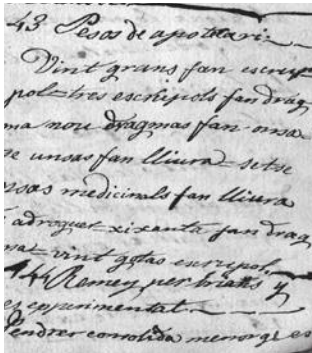 43 Pesos de apotecari.
Vint grans fan escrup
pol = tres escripols fan drag
ma nou dragmas fan onsa
se unsas fan lliura = setse
nsas medicinals fan lliura
adroguer = xixanta fan drag
ma = vint gotas escripol.
144 Remey per brians y
es experimental
Pendrer consolida menor qe es